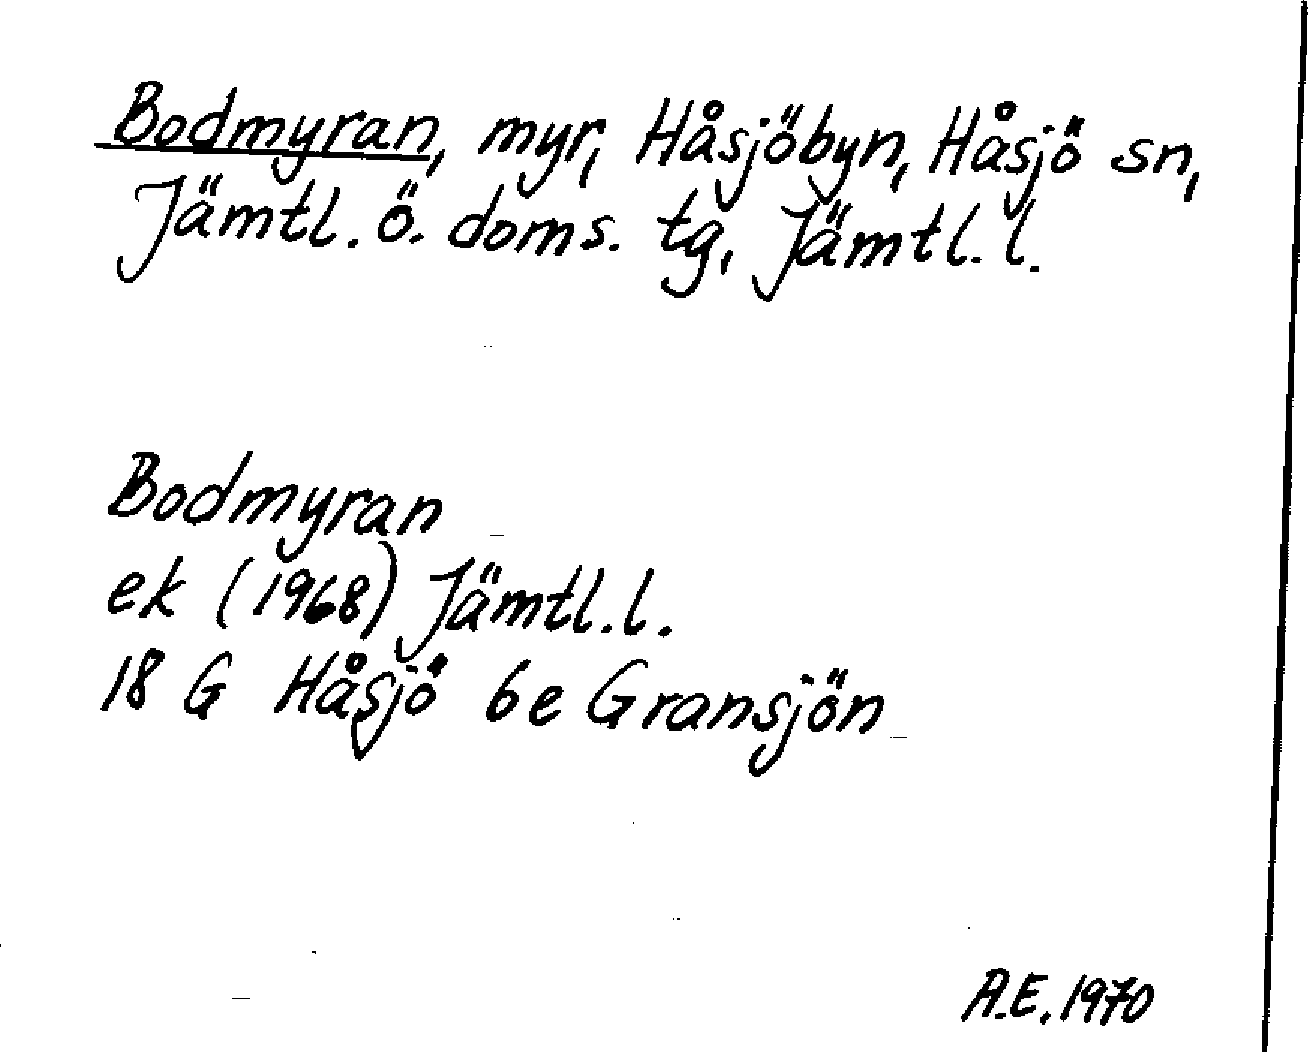 Bodmyran, myr, Håsjöbyn, Håsjö sn,
Jämtl. ö. doms. tg, Jämtl. l.
Bodmyran
ek (1968) Jämtl. l.
18 G Håsjö 6e Gransjön
A.E. 1970